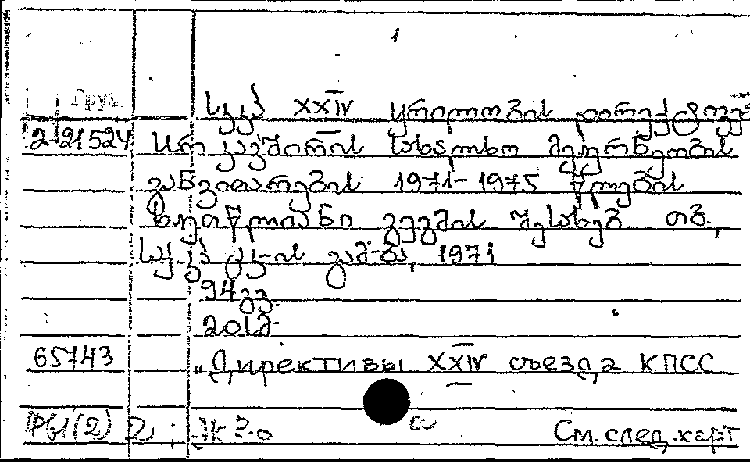 1
Груз.
სკკპ XXIV ყრილობის დირექტივები
2 21524 სსრ კავშირის სახალხო მეურნეობის
განვითარების 1971-1975 წლების
ხუთწლიანი გეგმის შესახებ თბ.,
საქ. კპ ცკ-ის გამ-ბა, 1971
94 გვ.
20სმ.
65743 „Директивы XXIV съезда КПСС
См. след. карт